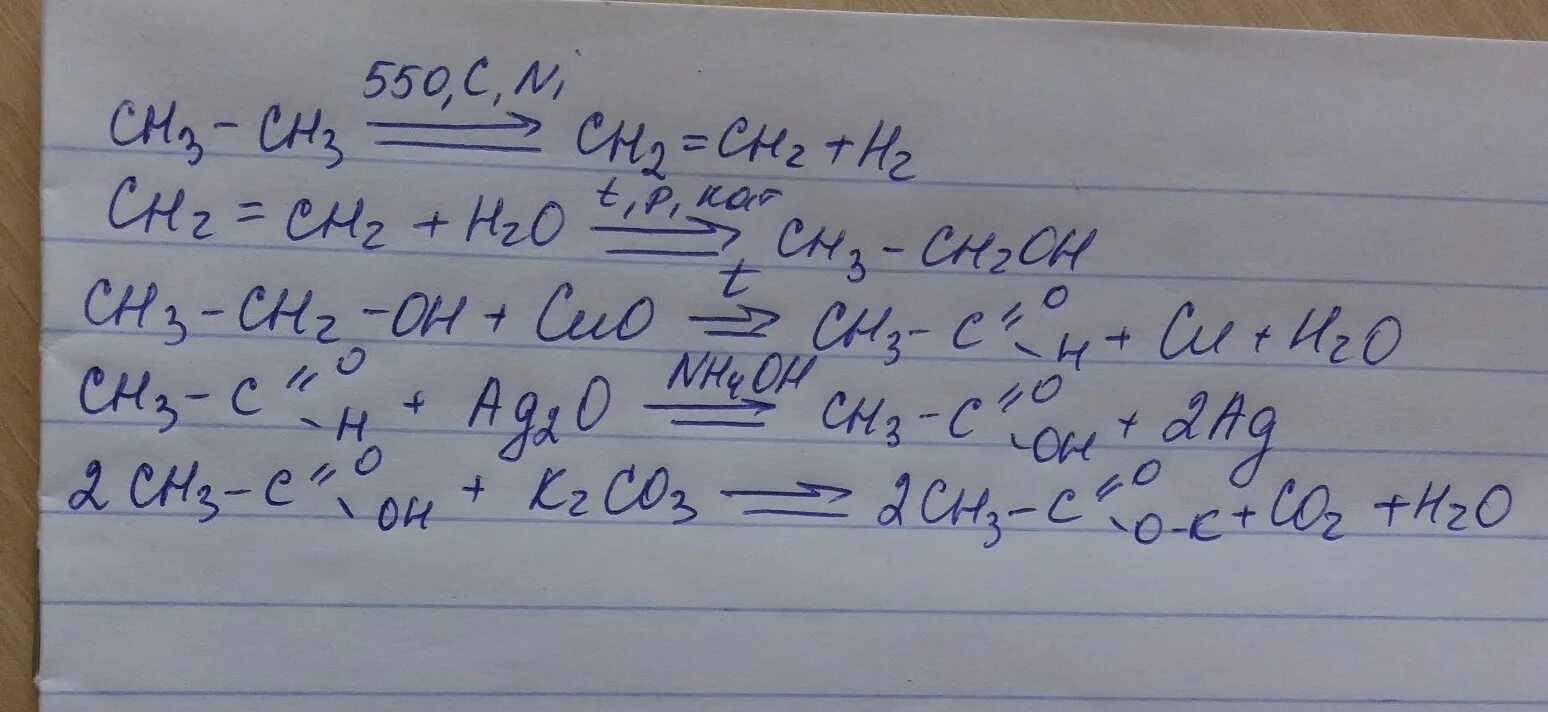 CH3 – CH3 550,C,Ni ⇒ CH2 = CH2 + H2
CH2 = CH2 + H2O t, p, кат ⇒ CH3 – CH2OH
CH3 – CH2 – OH + CuO t ⇒ CH3 – C =O –H + Cu + H2O
CH3 – C =O –H + Ag2O NH4OH ⇒ CH3 – C =O –OH + 2Ag
2CH3 – C =O –OH + K2CO3 ⇒ 2CH3 – C =O –O–K + CO2 + H2O